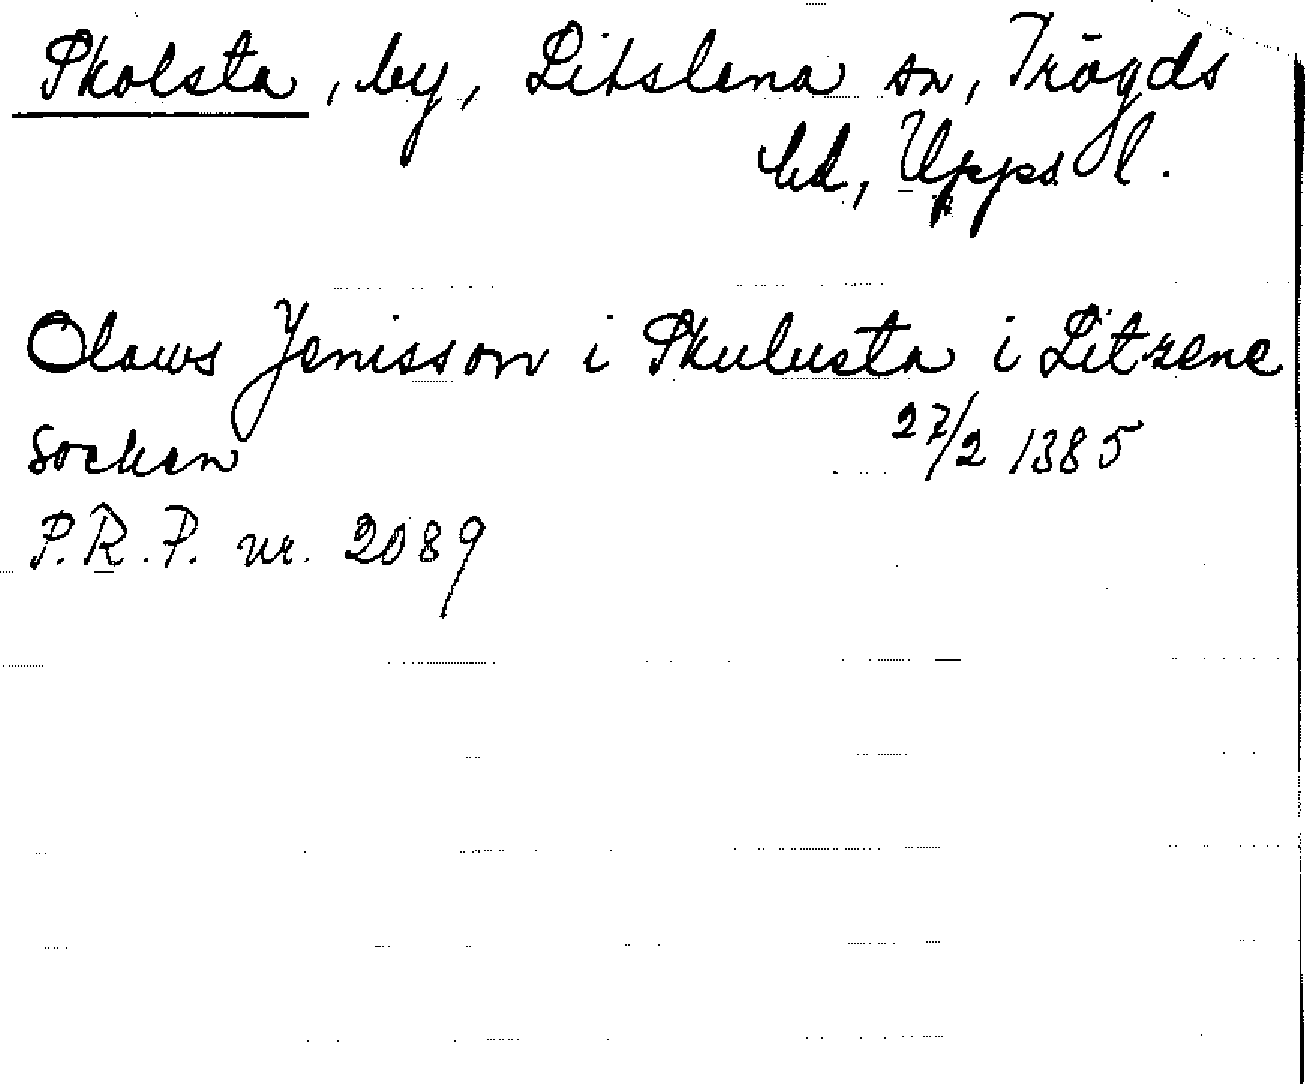 Skolsta, by, Litslena sn, Trögds
hd, Upps l.
Olaws Jenisson i Skulusta i Litzene
Socken 27/2 1385
P.R.P. nr. 2089